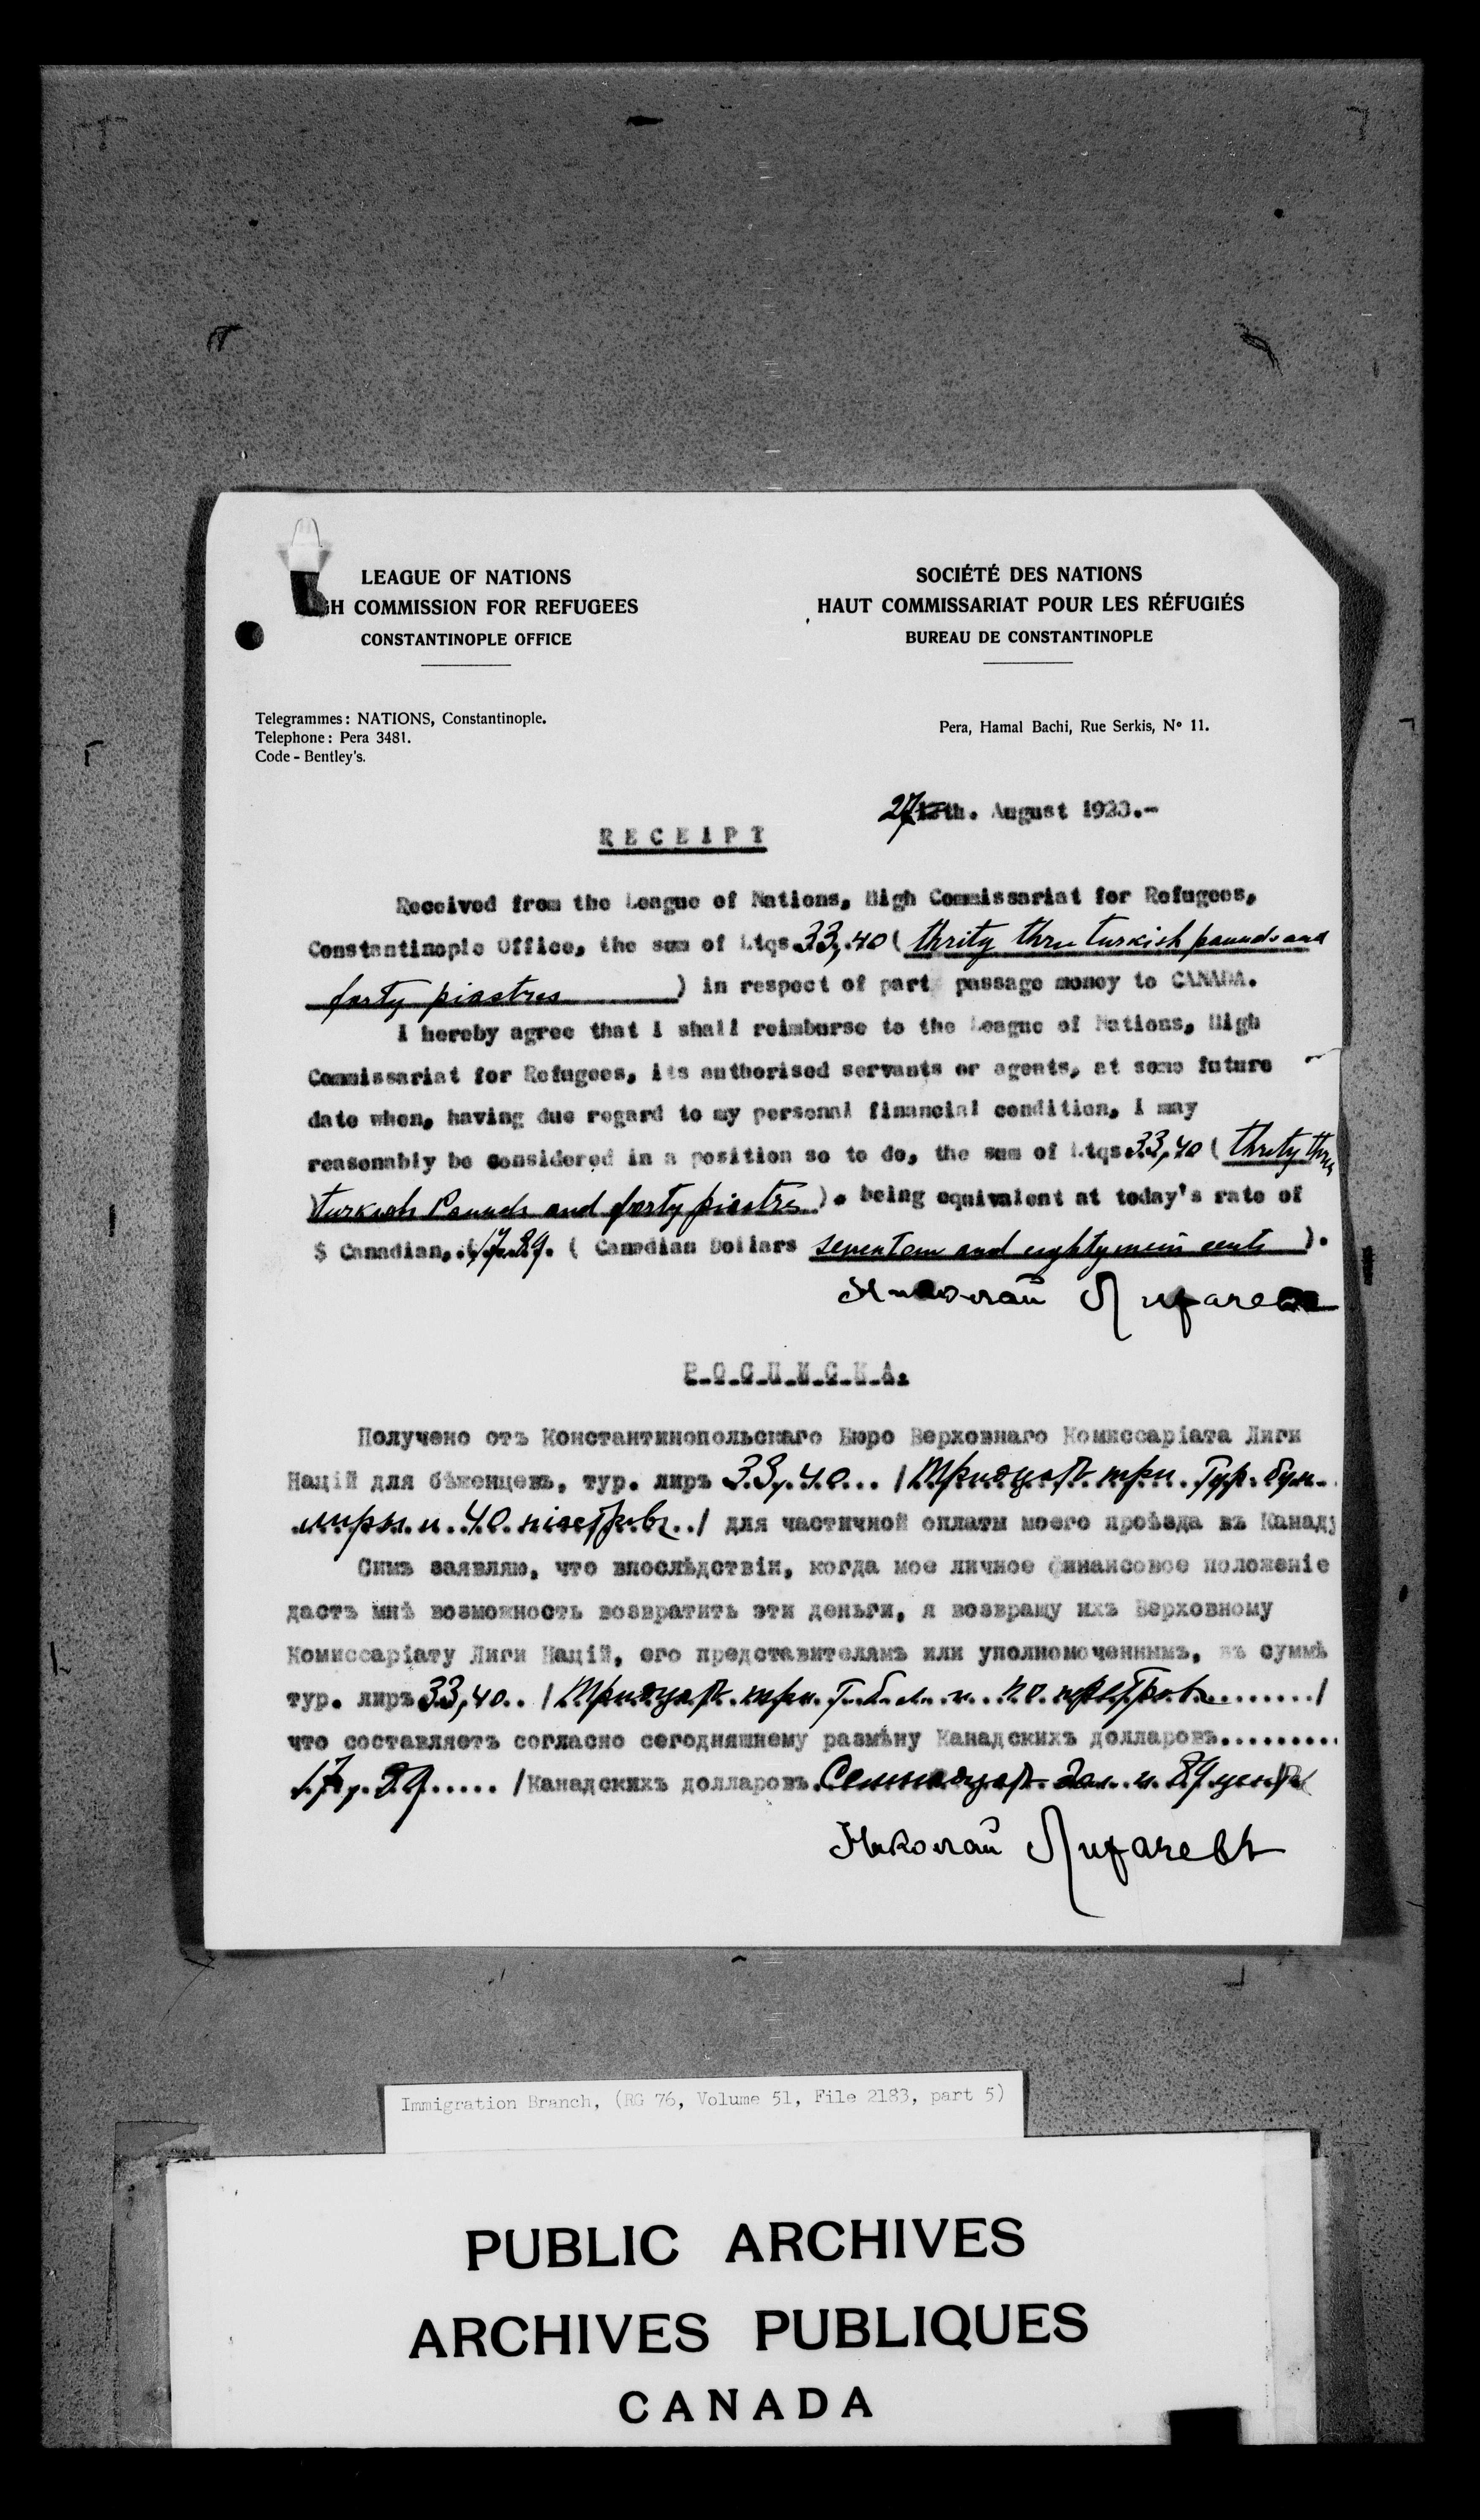 LEAGUE OF NATIONS
GH COMMISSION FOR REFUGEES
CONSTANTINOPLE OFFICE
SOCIÉTÉ DES NATIONS
HAUT COMMISSARIAT POUR LES RÉFUGIÉS
BUREAU DE CONSTANTINOPLE
Telegrammes: NATIONS, Constantinople.
Telephone: Pera 3481.
Code - Bentley's.
Pera, Hamal Bachi, Rue Serkis, Nº 11.
27th. August 1923.-
RECEIPT
Received from the League of Nations, High Commissariat for Refugees,
Constantinople Office, the sum of Ltqs 33,40 ( thrity thre turkish pounds and
forty piastres ) in respect of part passage money to CANADA.
I hereby agree that I shall reimburse to the League of Nations, High
Commissariat for Refugees, its authorised servants or agents, at some future
date when, having due regard to my personal financial condition, I may
reasonably be considered in a position so to do, the sum of Ltqs.33,40 ( thrity thre
turkish Pounds and forty piastres ). being equivalent at today's rate of
$ Canadian, 17.89. ( Canadian Dollars seventeen and eighty nein cents ).
Николай
Р-О-С-П-И-С-К-А.
Получено отъ Константинопольскаго Бюро Верховнаго Комиссаріата Лиги
Націй для бѣженцевъ, тур. лиръ 33,40... /Тридцать три Тур. бум.
лиры и 40 піастровъ../ для частичной оплаты моего проѣзда въ Канаду
Симъ заявляю, что впослѣдствіи, когда мое личное финансовое положеніе
дастъ мнѣ возможность возвратить эти деньги, я возвращу ихъ Верховному
Комиссаріату Лиги Націй, его представителямъ или уполномоченнымъ, въ суммѣ
тур. лиръ 33,40.. /Тридцать три Т. б. л. и 40 піастровъ......../
что составляетъ согласно сегодняшнему размѣну Канадскихъ долларовъ.........
17,89..... /Канадскихъ долларовъ.Семнадцать дол. и 89 центъ
Николай Лифаревъ
Immigration Branch, (RG 76, Volume 51, File 2183, part 5)
PUBLIC ARCHIVES
ARCHIVES PUBLIQUES
CANADA